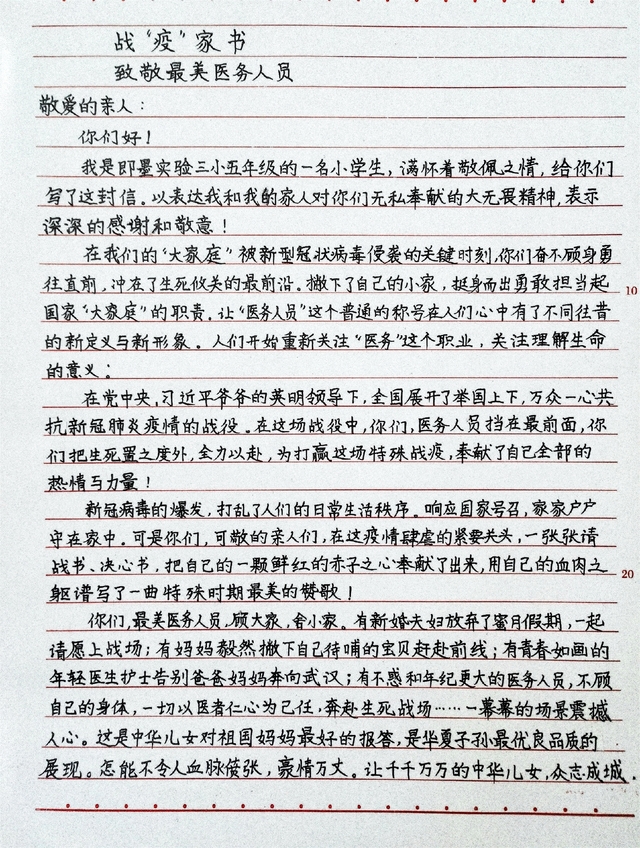 战“疫”家书
致敬最美医务人员
敬爱的亲人：
你们好！
我是即墨实验三小五年级的一名小学生，满怀着敬佩之情，给你们
写了这封信。以表达我和我的家人对你们无私奉献的大无畏精神，表示
深深的感谢和敬意！
在我们的“大家庭”被新型冠状病毒侵袭的关键时刻，你们奋不顾身勇
往直前，冲在了生死攸关的最前沿。撇下了自己的小家，挺身而出勇敢担当起
国家“大家庭”的职责。让“医务人员”这个普通的称号在人们心中有了不同往昔
的新定义与新形象。人们开始重新关注“医务”这个职业，关注理解生命
的意义；
在党中央，习近平爷爷的英明领导下，全国展开了举国上下，万众一心共
抗新冠肺炎疫情的战役。在这场战役中，你们，医务人员挡在最前面，你
们把生死置之度外，全力以赴，为打赢这场特殊战疫，奉献了自己全部的
热情与力量！
新冠病毒的爆发，打乱了人们的日常生活秩序。响应国家号召，家家户户
守在家中。可是你们，可敬的亲人们，在这疫情肆虐的紧要关头，一张张请
战书、决心书，把自己的一颗鲜红的赤子之心奉献了出来，用自己的血肉之
躯谱写了一曲特殊时期最美的赞歌！
你们，最美医务人员，顾大家，舍小家。有新婚夫妇放弃了蜜月假期，一起
请愿上战场；有妈妈毅然撇下自己待哺的宝贝赶赴前线；有青春如画的
年轻医生护士告别爸爸妈妈奔向武汉；有不惑和年纪更大的医务人员，不顾
自己的身体，一切以医者仁心为己任，奔赴生死战场……一幕幕的场景震撼
人心。这是中华儿女对祖国妈妈最好的报答，是华夏子孙最优良品质的
展现。怎能不令人血脉偾张，豪情万丈。让千千万万的中华儿女，众志成城，
10
20